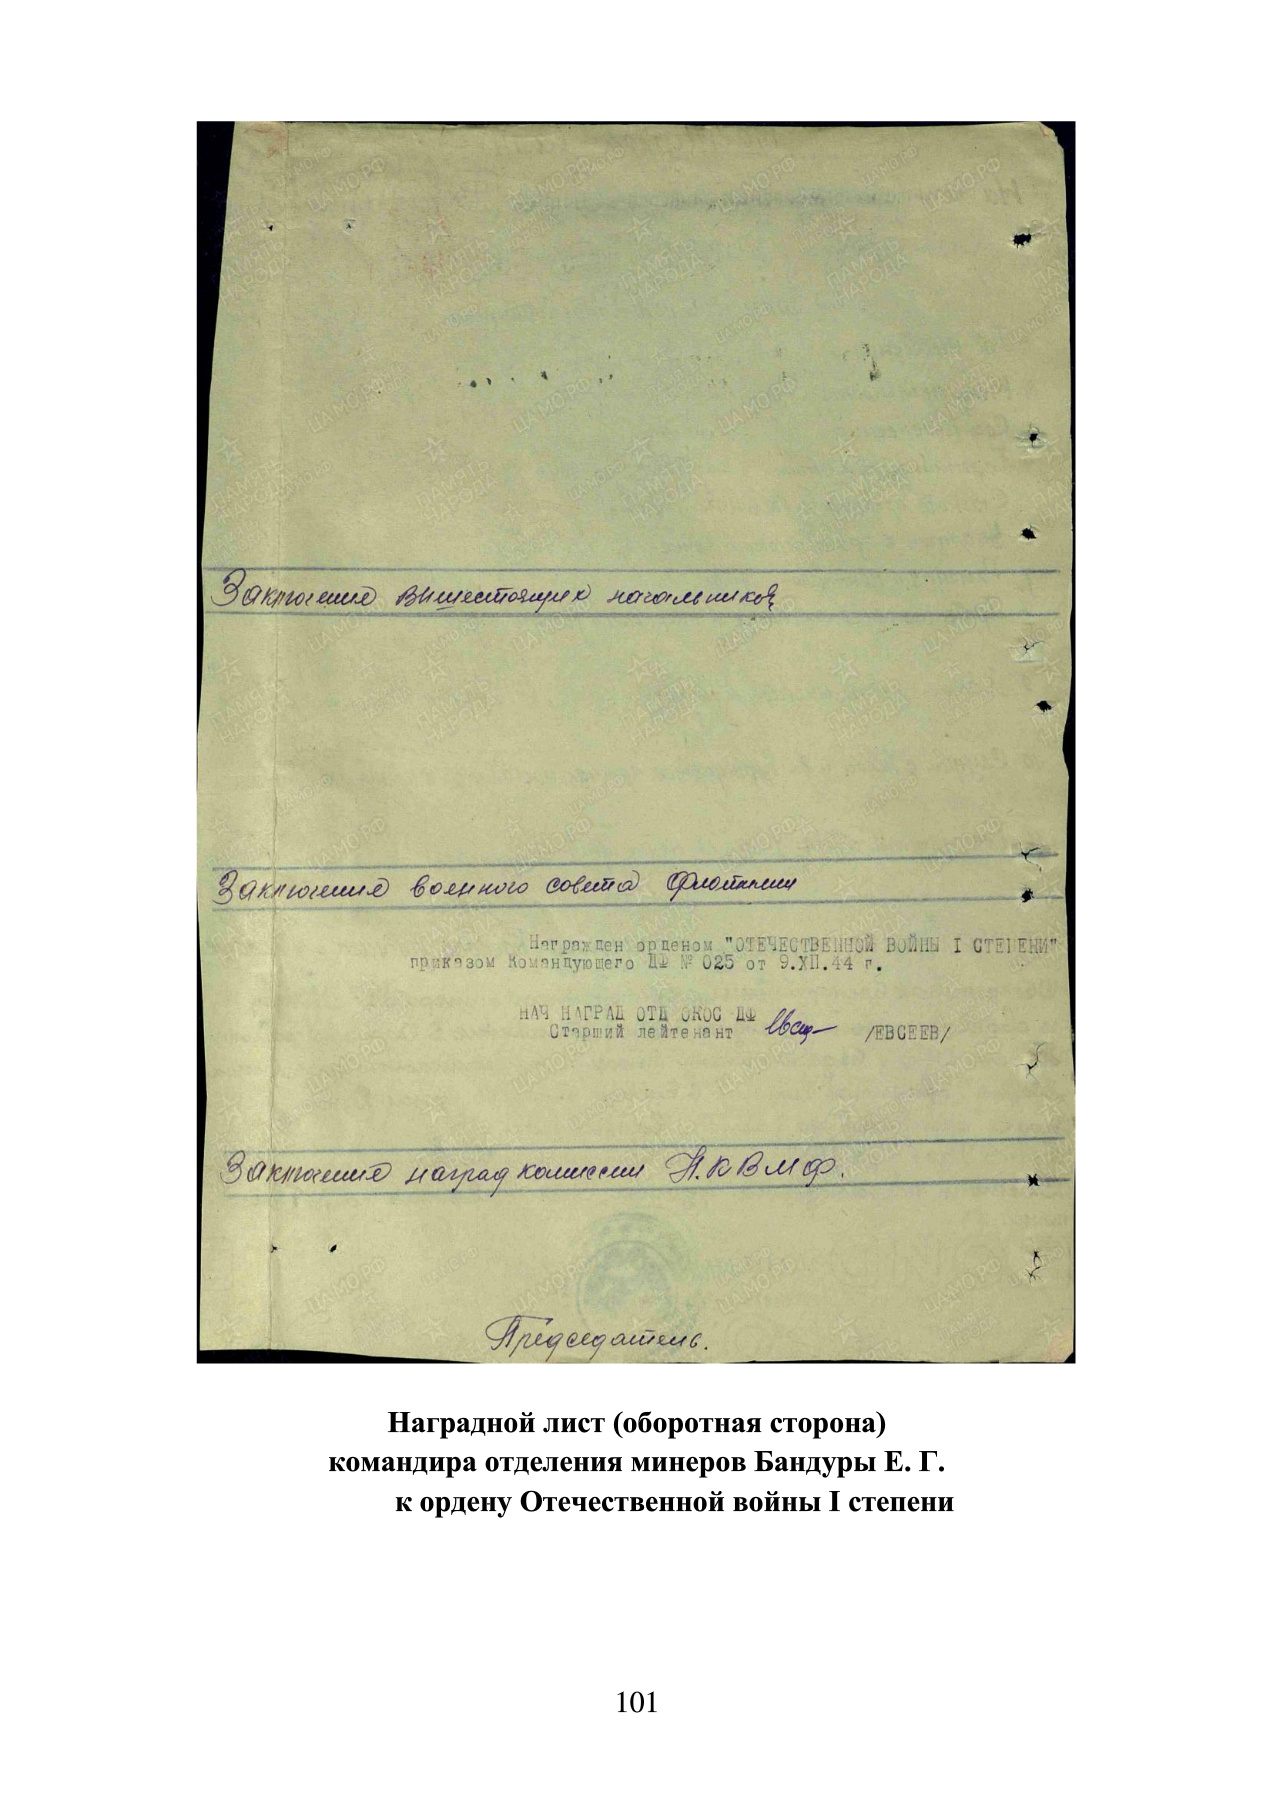 Заключение вышестоящих начальников
Заключения военного совета флотилии
Награжден орденом "ОТЕЧЕСТВЕННОЙ ВОЙНЫ I СТЕПЕНИ"
приказом Командующего ДФ № 025 от 9.XII.44 г.
НАЧ НАГРАД ОТД ОКОС ДФ
Старший лейтенант /ЕВСЕЕВ/
Заключения наград комиссии Н.К В М Ф.
Председатель.
Наградной лист (оборотная сторона)
командира отделения минеров Бандуры Е. Г.
к ордену Отечественной войны I степени
101